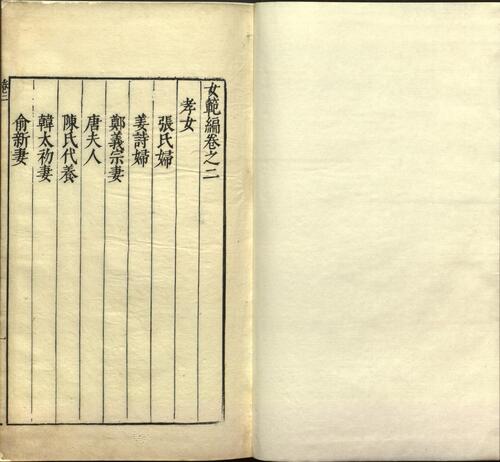 女範編卷之二
孝女
張氏婦
姜詩婦
鄭義宗妻
唐夫人
陳氏代養
韓太初妻
俞新妻
卷二